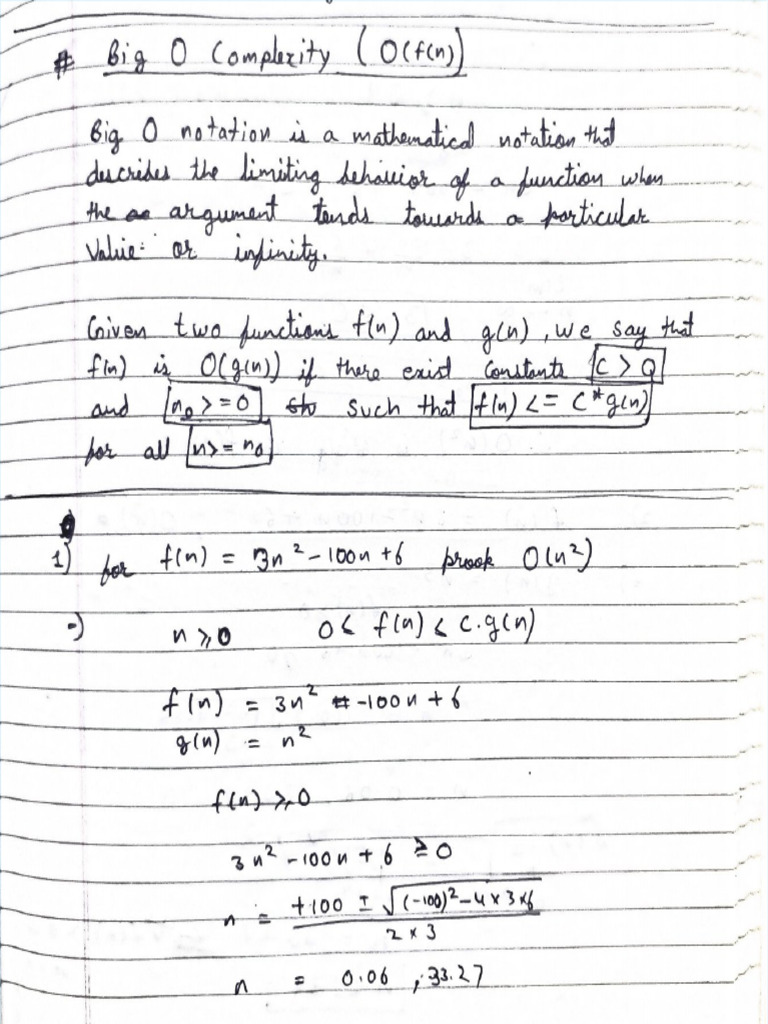 # Big O Complexity ( O(f(n))
Big O notation is a mathematical notation that
descrides the limiting behavior of a function when
the argument tends towards a particular
Value or infinity.
Given two functions f(n) and g(n), we say that
f(n) is O(g(n)) if there exist constants C > 0
and n₀ >= 0 such that f(n) <= C*g(n)
for all n >= n₀
1) for f(n) = 3n² - 100n + 6 prook O(n²)
→) n ≥ 0 0 ≤ f(n) ≤ C.g(n)
f(n) = 3n² - 100n + 6
g(n) = n²
f(n) ≥ 0
3n² - 100n + 6 ≥ 0
n = +100 ± √(-100)² - 4 x 3 x 6
2 x 3
n = 0.06 , 33.27